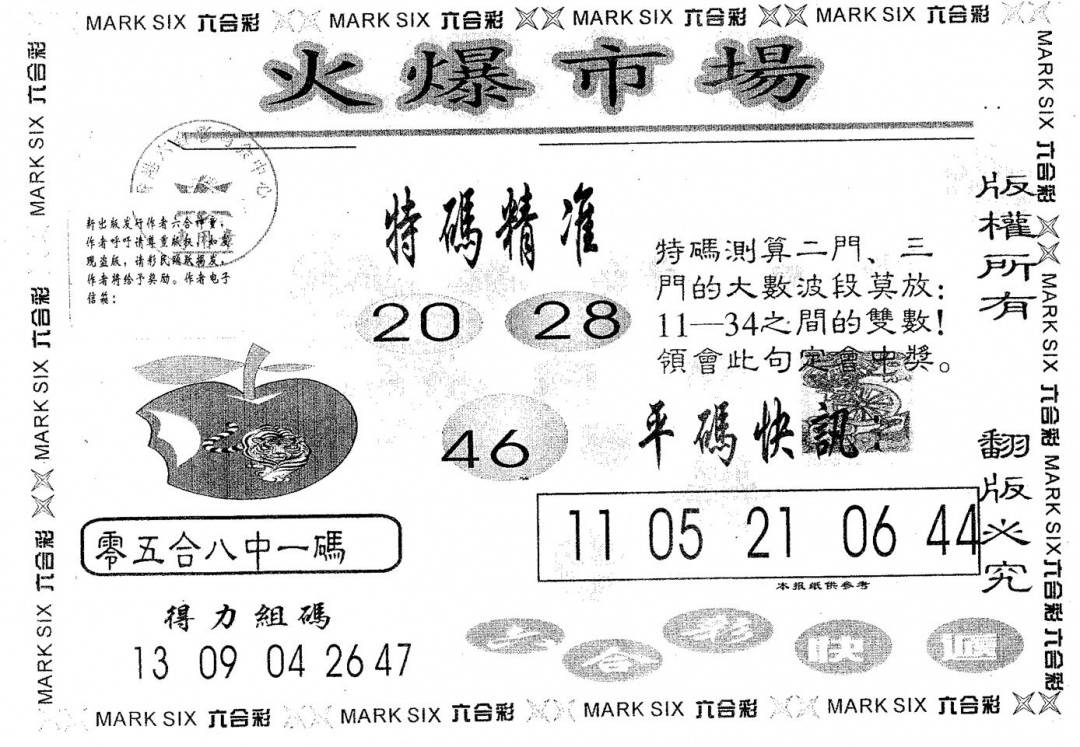 MARK SIX 六合彩 MARK SIX 六合彩 MARK SIX 六合彩 MARK SIX 六合彩
火爆市場
特碼精准
新出版发行作者六合神童，
作者呼吁请尊重版权，如发
现盗版，请彩民踊跃揭发，
作者将给予奖励。作者电子
信箱：
20 28
46
特碼測算二門、三
門的大數波段莫放：
11—34之間的雙數！
領會此句定會中獎。
平碼快訊
11 05 21 06 44
本报纸供参考
零五合八中一碼
得力組碼
13 09 04 26 47
六合彩快遞
版權所有
翻版必究
MARK SIX 六合彩 MARK SIX 六合彩 MARK SIX 六合彩
MARK SIX 六合彩 MARK SIX 六合彩 MARK SIX 六合彩 六合彩
MARK SIX 六合彩 MARK SIX 六合彩 MARK SIX 六合彩 MARK SIX 六合彩